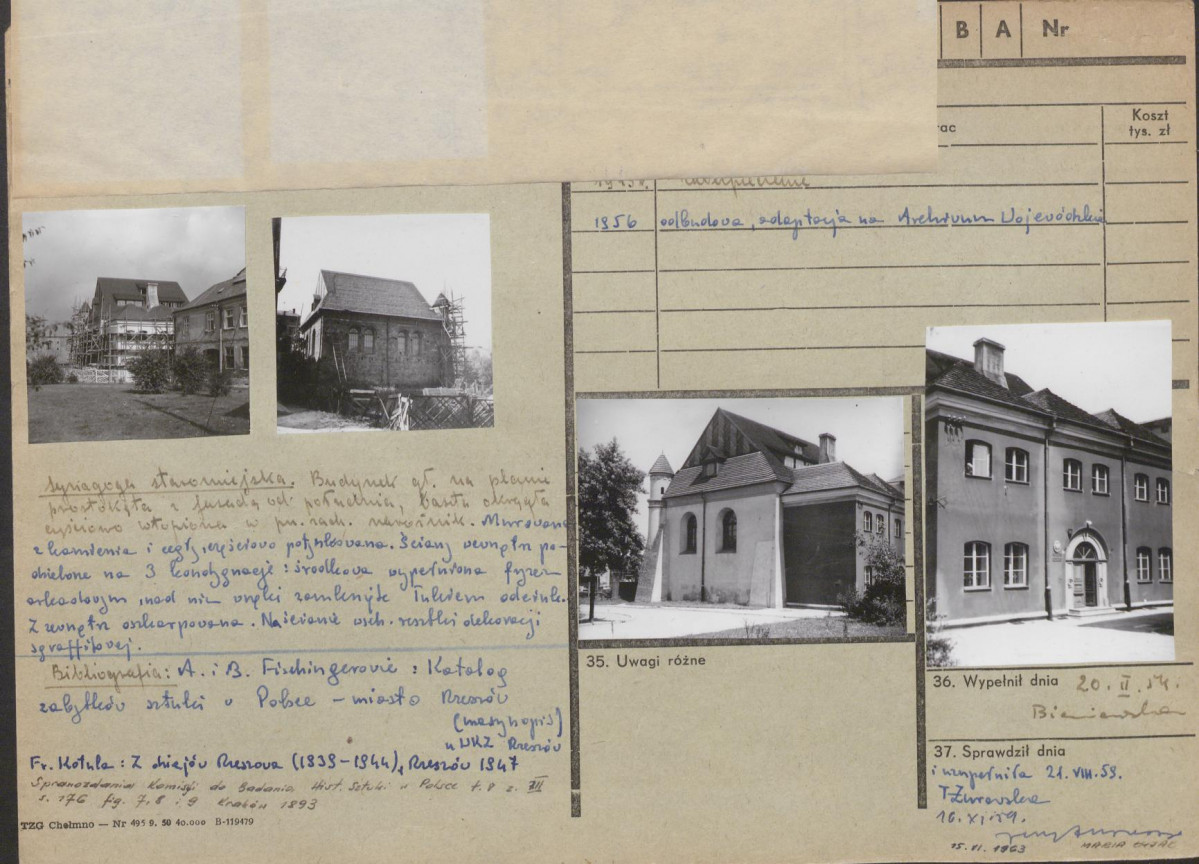 B A Nr
rac
Koszt
tys. zł
1956 odbudowa, adaptacja na Archiwum Wojewódzkie
Synagoga staromiejska. Budynek gł. na planie
prostokąta z fasadą od południa, baszta okrągła
częściowo wtopiona w pn. zach. narożnik. Murowana
z kamienia i cegły, częściowo potynkowana. Ściany wewnątrz po-
dzielone na 3 kondygnacje: środkowa wypełniona fryzem
arkadowym, nad nim wnęki zamknięte łukiem odcink.
Z zewnątrz oszkarpowana. Na ścianie wsch. resztki dekoracji
sgraffitowej.
Bibliografia: A. i B. Fischingerowie: Katalog
zabytków sztuki w Polsce – miasto Rzeszów
(maszynopis)
u WKZ Rzeszów
Fr. Kotula: Z dziejów Rzeszowa (1939–1944), Rzeszów 1947
Sprawozdania Komisji do Badania Hist. Sztuki w Polsce t. 8 z. III
s. 176 fig. 7, 8 i 9 Kraków 1893
TZG Chełmno — Nr 495 9. 50 40.000 B-119479
35. Uwagi różne
36. Wypełnił dnia 20. II. 54.
37. Sprawdził dnia
i uzupełniła 21. VIII. 59.
T Żurawska
16. XI. 59.
15. VI. 1963 MARIA